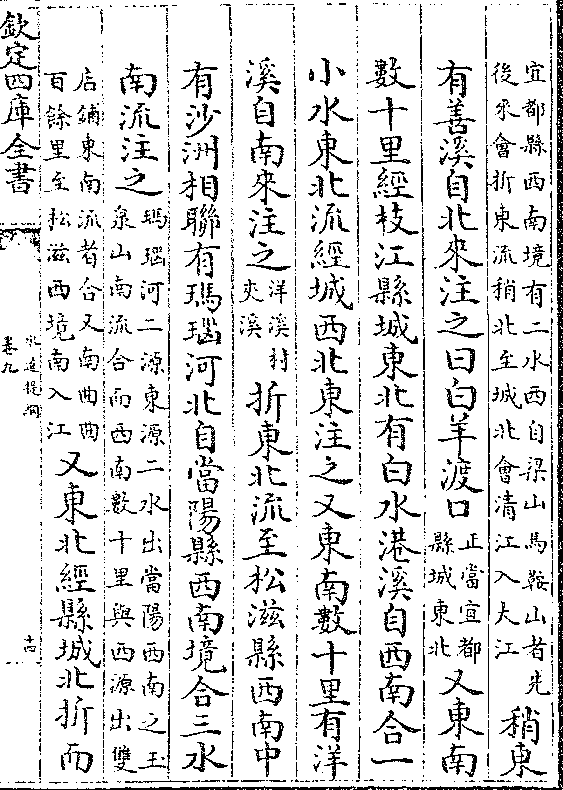 宜都縣西南境有二水西自梁山馬鞍山者先
後來會折東流稍北至城北會清江入大江
稍東
有善溪自北來注之曰白羊渡口
正當宜都
縣城東北
又東南
數十里經枝江縣城東北有白水港溪自西南合一
小水東北流經城西北東注之又東南數十里有洋
溪自南來注之
洋溪村
夾溪
折東北流至松滋縣西南中
有沙洲相聯有瑪瑙河北自當陽縣西南境合三水
南流注之
瑪瑙河二源東源二水出當陽西南之玉
泉山南流合而西南數十里與西源出雙
店鋪東南流者合又南曲曲
百餘里至松滋西境南入江
又東北經縣城北折而
欽定四庫全書
水道提綱
卷九
十四